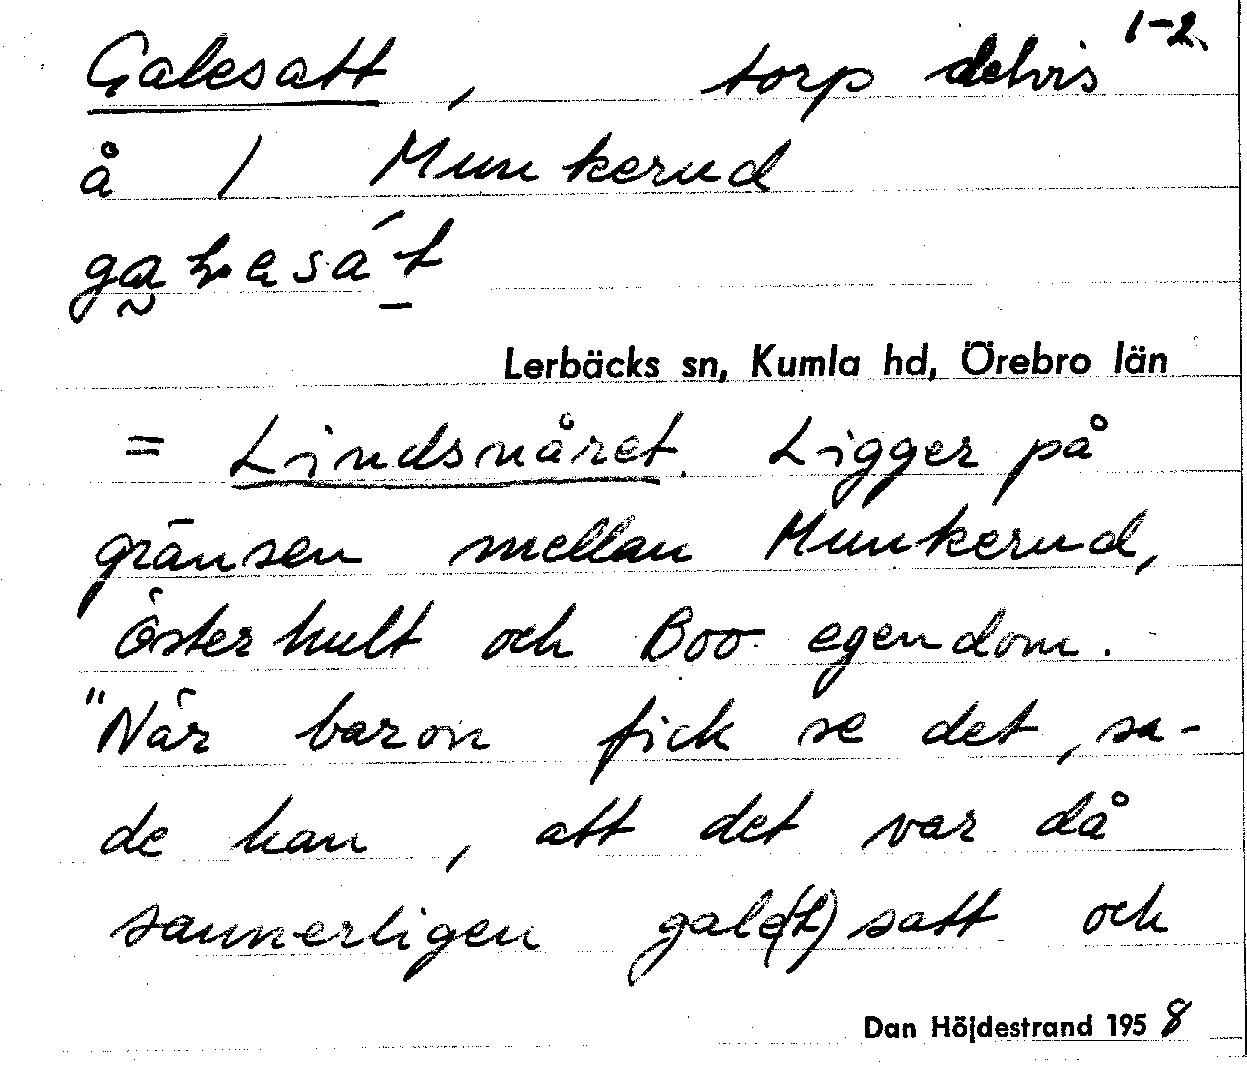 1-2
Galesatt, torp delvis
å / Munkerud
Lerbäcks sn, Kumla hd, Örebro län
= Lindsnåret. Ligger på
gränsen mellan Munkerud,
Österhult och Boo egendom.
"När baron fick se det, sa-
de han, att det var då
sannerligen gale(t) satt och
Dan Höjdestrand 1958